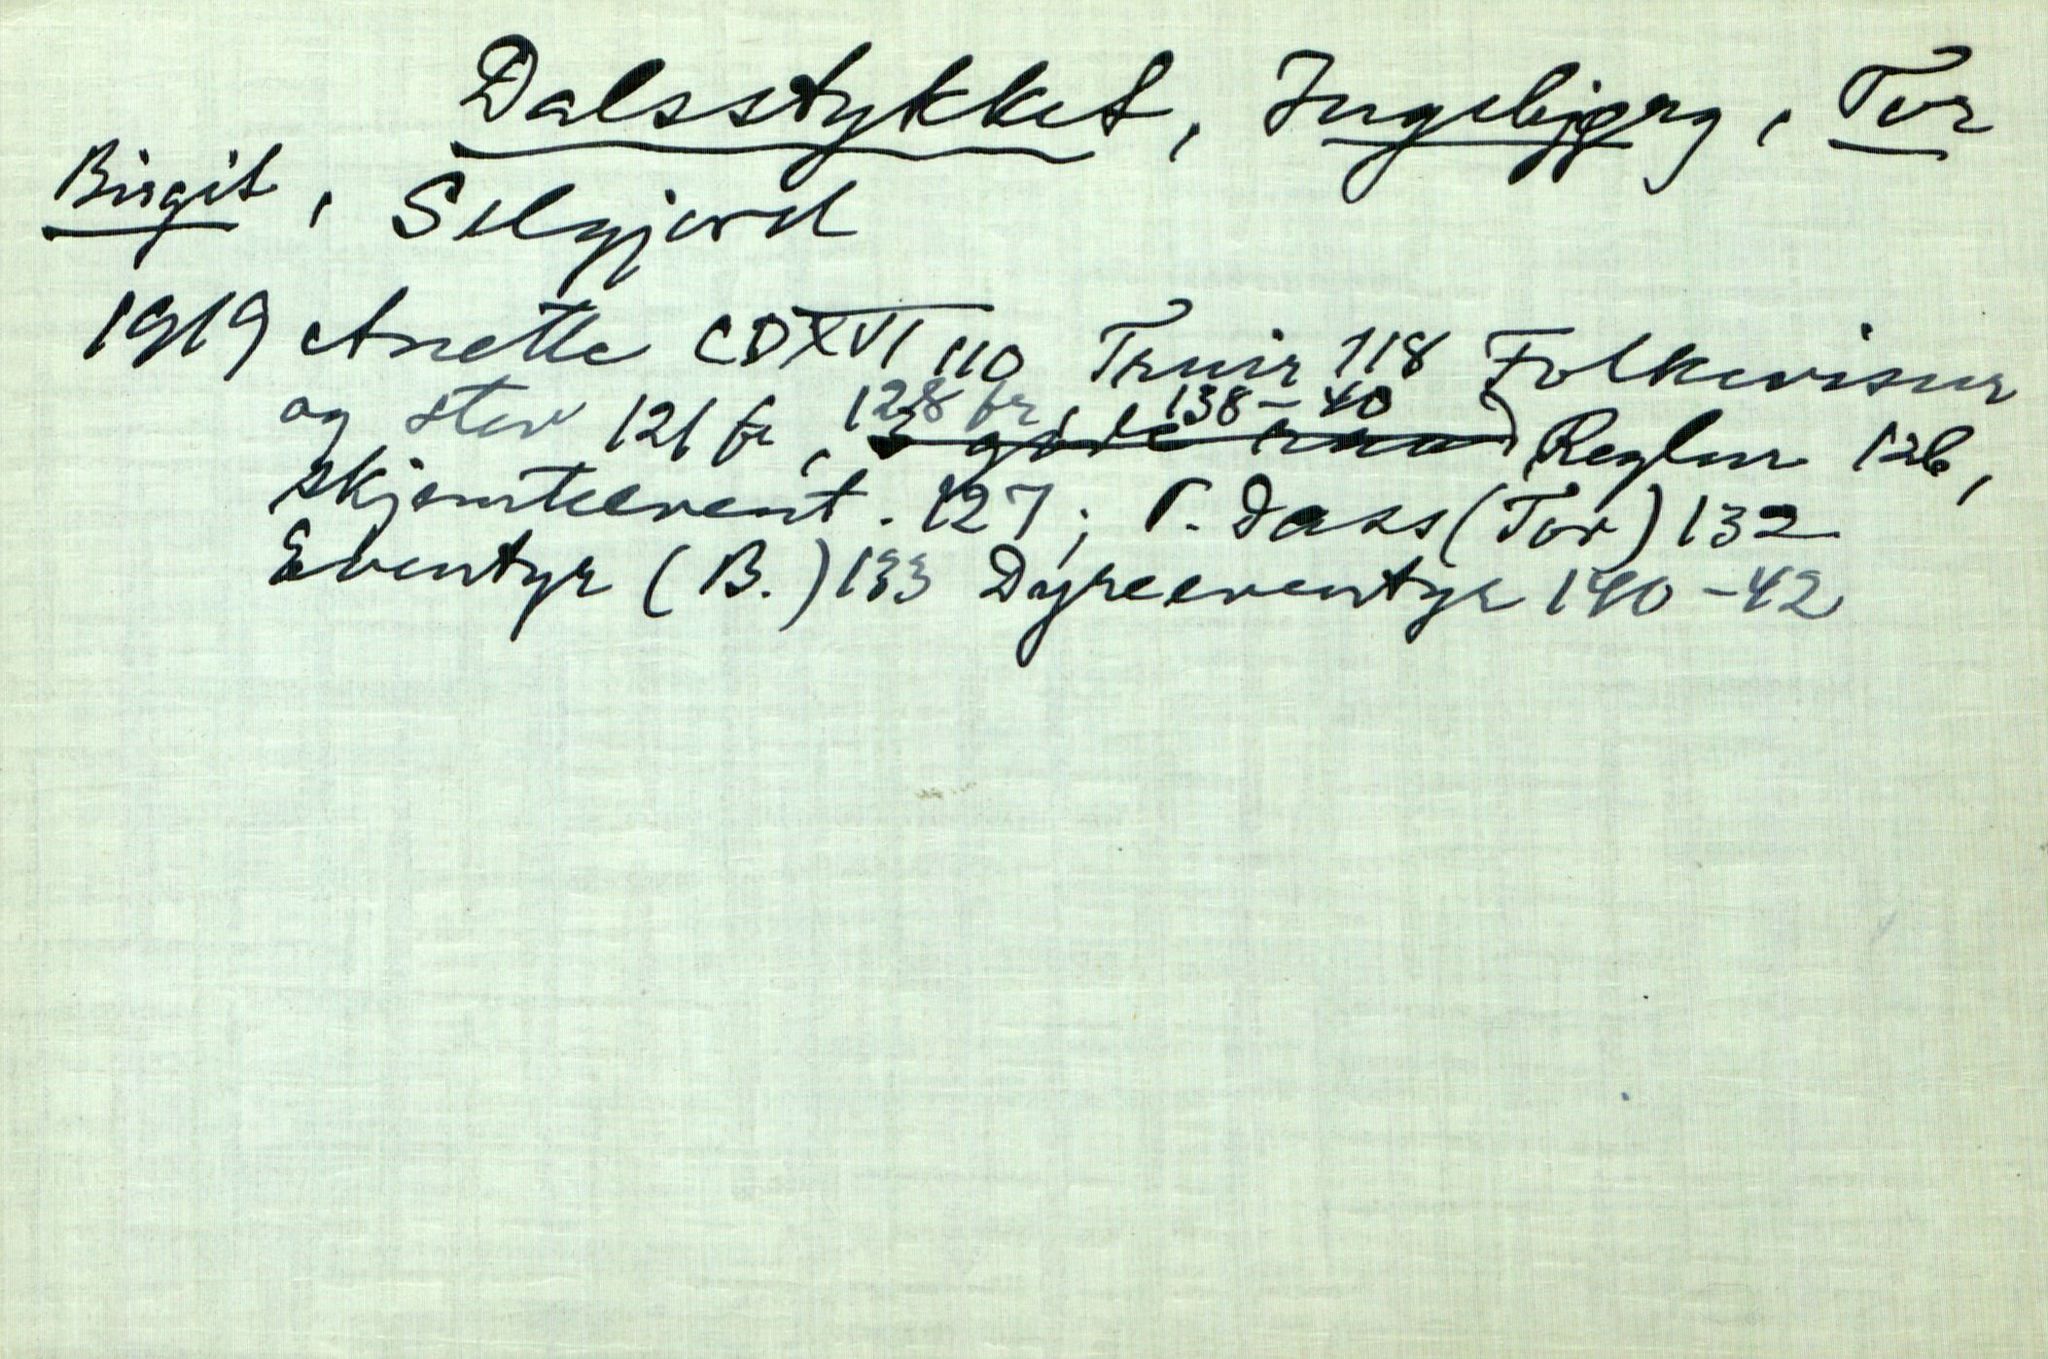 Dalsstykket, Ingebjørg, Tor
Birgit, Seljord
1919 Anette CDXVI 110 Truir 118 Folkeviser
og stev 121 fr, 128 fr, 138-40 Reglur 126,
skjemteevent. 127; P. Dass (Tor) 132
Eventyr (B.) 133 Dyreeventyr 140-42